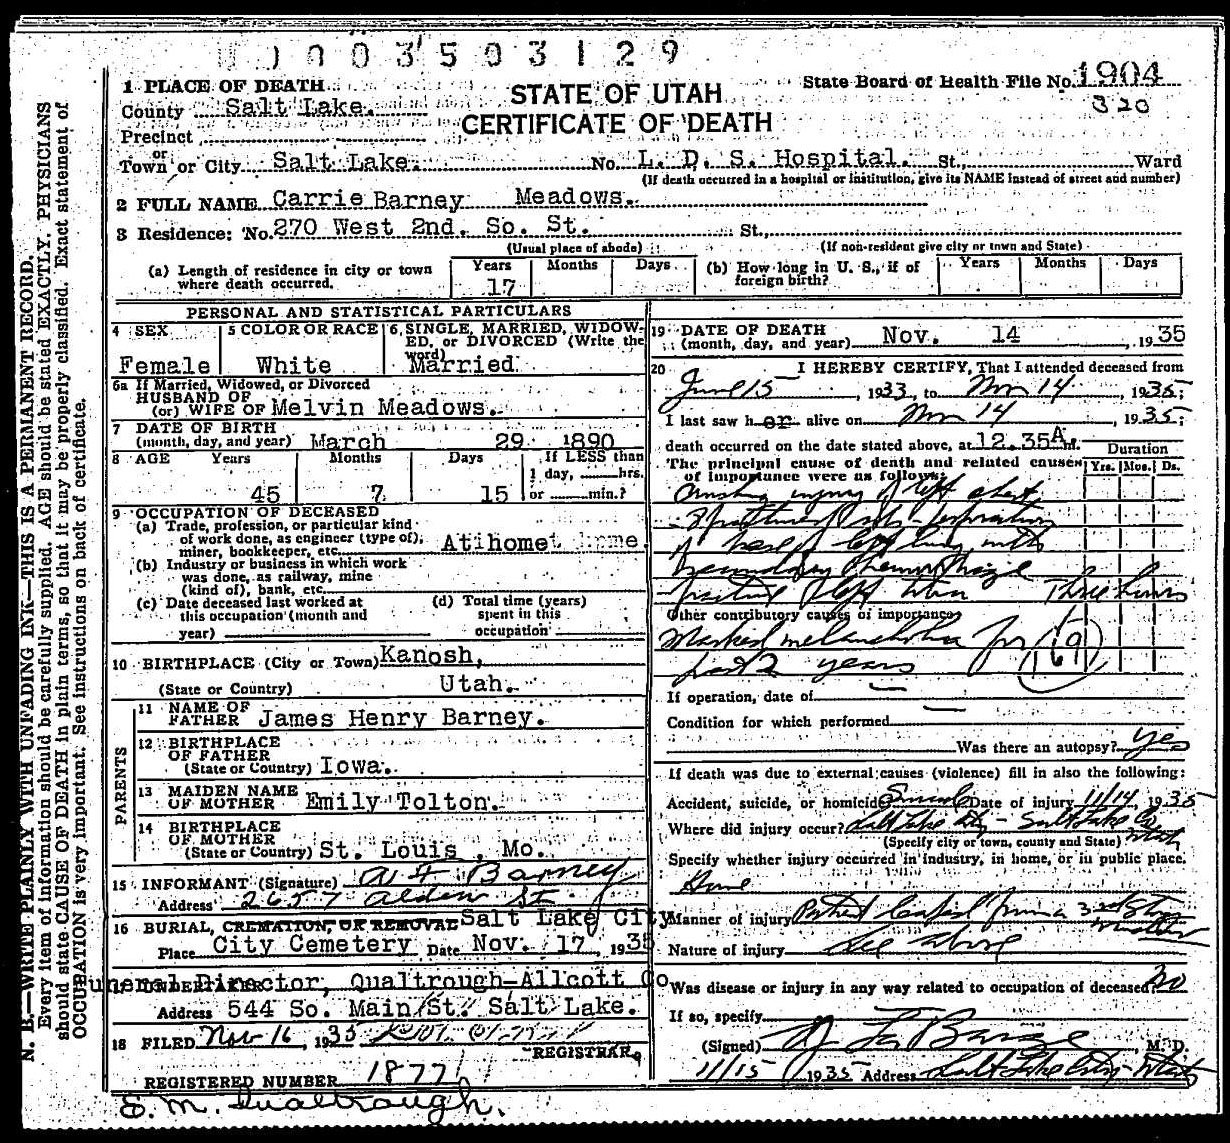 1003503129
State Board of Health File No. 1904
320
STATE OF UTAH
CERTIFICATE OF DEATH
1 PLACE OF DEATH
County Salt Lake.
Precinct
or
Town or City Salt Lake. No. L. D. S. Hospital. St., Ward
(If death occurred in a hospital or institution, give its NAME instead of street and number)
2 FULL NAME Carrie Barney Meadows.
3 Residence: No. 270 West 2nd. So. St. St.,
(Usual place of abode) (If non-resident give city or town and State)
(a) Length of residence in city or town where death occurred. Years 17 Months Days
(b) How long in U. S., if of foreign birth? Years Months Days
PERSONAL AND STATISTICAL PARTICULARS
4 SEX Female
5 COLOR OR RACE White
6 SINGLE, MARRIED, WIDOWED, or DIVORCED (Write the word) Married
6a If Married, Widowed, or Divorced
HUSBAND OF
(or) WIFE OF Melvin Meadows.
7 DATE OF BIRTH
(month, day, and year) March 29 1890
8 AGE Years 45 Months 7 Days 15 If LESS than 1 day, hrs. or min.?
9 OCCUPATION OF DECEASED
(a) Trade, profession, or particular kind of work done, as engineer (type of), miner, bookkeeper, etc. At home
(b) Industry or business in which work was done, as railway, mine (kind of), bank, etc.
(c) Date deceased last worked at this occupation (month and year)
(d) Total time (years) spent in this occupation
10 BIRTHPLACE (City or Town) Kanosh,
(State or Country) Utah.
PARENTS
11 NAME OF FATHER James Henry Barney.
12 BIRTHPLACE OF FATHER
(State or Country) Iowa.
13 MAIDEN NAME OF MOTHER Emily Tolton.
14 BIRTHPLACE OF MOTHER
(State or Country) St. Louis, Mo.
15 INFORMANT (Signature) Barney
Address 2657 Alden St
16 BURIAL, CREMATION, OR REMOVAL Salt Lake City
Place City Cemetery Date Nov. 17, 1935
Funeral Director, Qualtrough-Allcott Co
Address 544 So. Main St. Salt Lake.
18 FILED Nov 16, 1935
REGISTRAR
REGISTERED NUMBER 1877
S. M. Qualtrough.
19 DATE OF DEATH
(month, day, and year) Nov. 14, 1935
20 I HEREBY CERTIFY, That I attended deceased from
June 15, 1933, to Nov 14, 1935;
I last saw her alive on Nov 14, 1935;
death occurred on the date stated above, at 12.35A.M.
The principal cause of death and related causes of importance were as follows: Duration Yrs. Mos. Ds.
Crushing injury of left chest
- fracture of ribs - perforation
of base of left lung with
secondary hemorrhage
fracture of left Three hours
Other contributory causes of importance
Marked melancholia for
past 2 years
169
If operation, date of
Condition for which performed
Was there an autopsy? Yes
If death was due to external causes (violence) fill in also the following:
Accident, suicide, or homicide Suicide Date of injury 11/14, 1935
Where did injury occur? Salt Lake City - Salt Lake Co Utah
(Specify city or town, county and State)
Specify whether injury occurred in industry, in home, or in public place.
Home
Manner of injury Patient leaped from a 3rd Story window
Nature of injury See above
Was disease or injury in any way related to occupation of deceased? No
If so, specify
(Signed) M. D.
11/15 1935 Address Salt Lake City - Utah
N. B.—WRITE PLAINLY WITH UNFADING INK—THIS IS A PERMANENT RECORD.
Every item of information should be carefully supplied. AGE should be stated EXACTLY. PHYSICIANS
should state CAUSE OF DEATH in plain terms, so that it may be properly classified. Exact statement of
OCCUPATION is very important. See instructions on back of certificate.